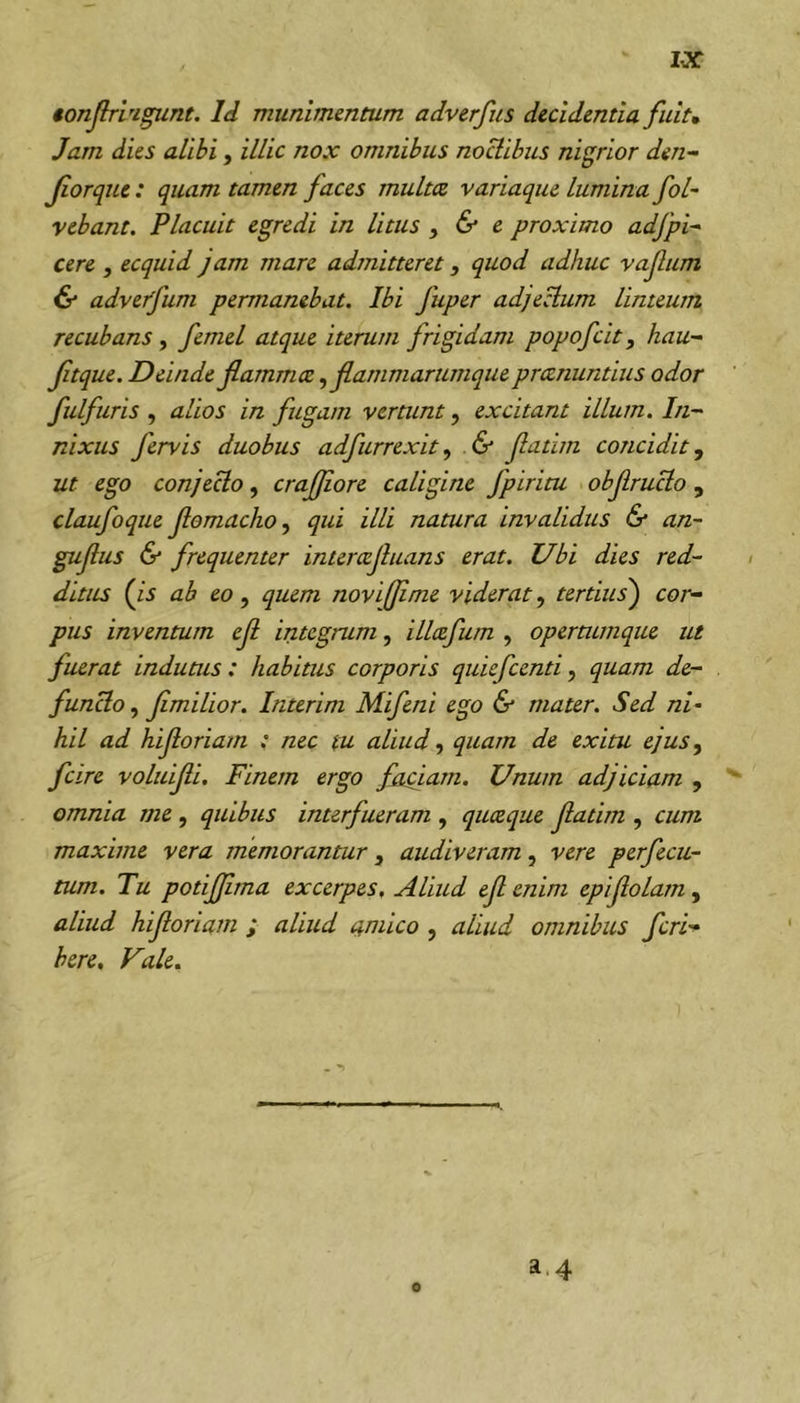 IX
conſtringunt. Id munimentum adverſus decidentia fuit.
Jam dies alibi, illic nox omnibus noctibus nigrior den-
ſiorque: quam tamen faces multæ variaque lumina ſol-
vebant. Placuit egredi in litus, & e proximo adſpi-
cere, ecquid jam mare admitteret, quod adhuc vaſtum
& adverſum permanebat. Ibi ſuper adjectum linteum
recubans, ſemel atque iterum frigidam popoſcit, hau-
ſitque. Deinde flammæ, flammarumque prænuntius odor
ſulfuris, alios in fugam vertunt, excitant illum. In-
nixus ſervis duobus adſurrexit, & ſtatim concidit,
ut ego conjecto, craſſiore caligine ſpiritu obſtructo,
clauſoque ſtomacho, qui illi natura invalidus & an-
guſtus & frequenter interæſtuans erat. Ubi dies red-
ditus (is ab eo, quem noviſſime viderat, tertius) cor-
pus inventum eſt integrum, illæſum, opertumque ut
fuerat indutus: habitus corporis quieſcenti, quam de-
functo, ſimilior. Interim Miſeni ego & mater. Sed ni-
hil ad hiſtoriam: nec tu aliud, quam de exitu ejus,
ſcire voluiſti. Finem ergo faciam. Unum adjiciam,
omnia me, quibus interfueram, quæque ſtatim, cum
maxime vera memorantur, audiveram, vere perſecu-
tum. Tu potiſſima excerpes. Aliud eſt enim epiſtolam,
aliud hiſtoriam; aliud amico, aliud omnibus ſcri-
bere. Vale.
a 4